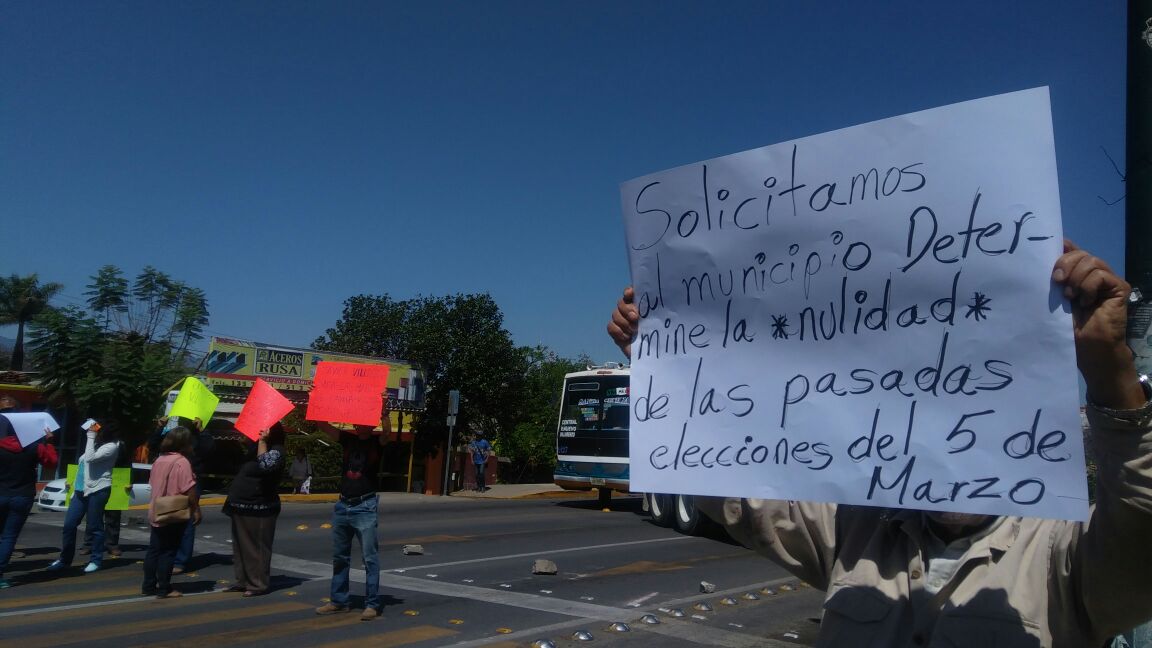 Solicitamos
al municipio Deter-
mine la *nulidad*
de las pasadas
elecciones del 5 de
Marzo
ACEROS
RUSA